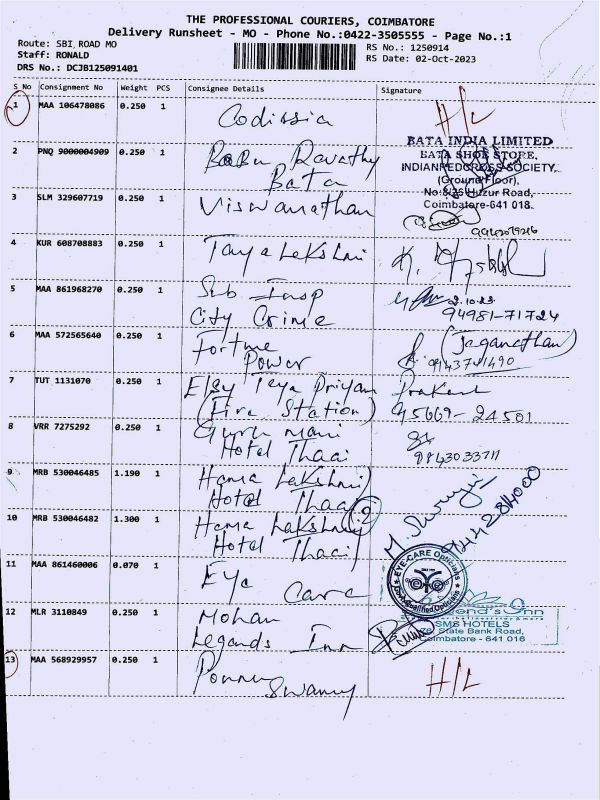 THE PROFESSIONAL COURIERS, COIMBATORE
Delivery Runsheet - MO - Phone No.:0422-3505555 - Page No.:1
Route: SBI ROAD MO
Staff: RONALD
DRS No.: DCJB125091401
RS No.: 1250914
RS Date: 02-Oct-2023
S No Consignment No Weight PCS Consignee Details Signature
1 MAA 106478086 0.250 1 Codissia H/L
2 PNQ 9000004909 0.250 1 Babu Revathy
Bata
BATA INDIA LIMITED
BATA SHOE STORE,
INDIANREDCROSS SOCIETY,
(Ground Floor),
No:8/25 Huzur Road,
Coimbatore-641 018.
3 SLM 329607719 0.250 1 Viswanathan
4 KUR 608708883 0.250 1 Jaya Lakshmi
5 MAA 861968270 0.250 1 Sub Insp
City Crime
2.10.23
94981-71724
6 MAA 572565640 0.250 1 Fortune
Power
(Jaganathan)
7 TUT 1131070 0.250 1 Priyan
(Fire Station)
Prakash
95669-24501
8 VRR 7275292 0.250 1 Guru Mani
Hotel Thaai
9843033711
9 MRB 530046485 1.190 1 Hama Lakshmi
Hotel Thaai
2
10 MRB 530046482 1.300 1 Hama Lakshmi
Hotel Thaai
11 MAA 861460006 0.070 1 Eye Care
EYE-CARE Opticians
Govt. Qualified Opticians
12 MLR 3110849 0.250 1 Mohan
Legands Inn
Legend's Inn
SMS HOTELS
State Bank Road,
Coimbatore - 641 016
13 MAA 568929957 0.250 1 Ponnu
Swamy
H/L